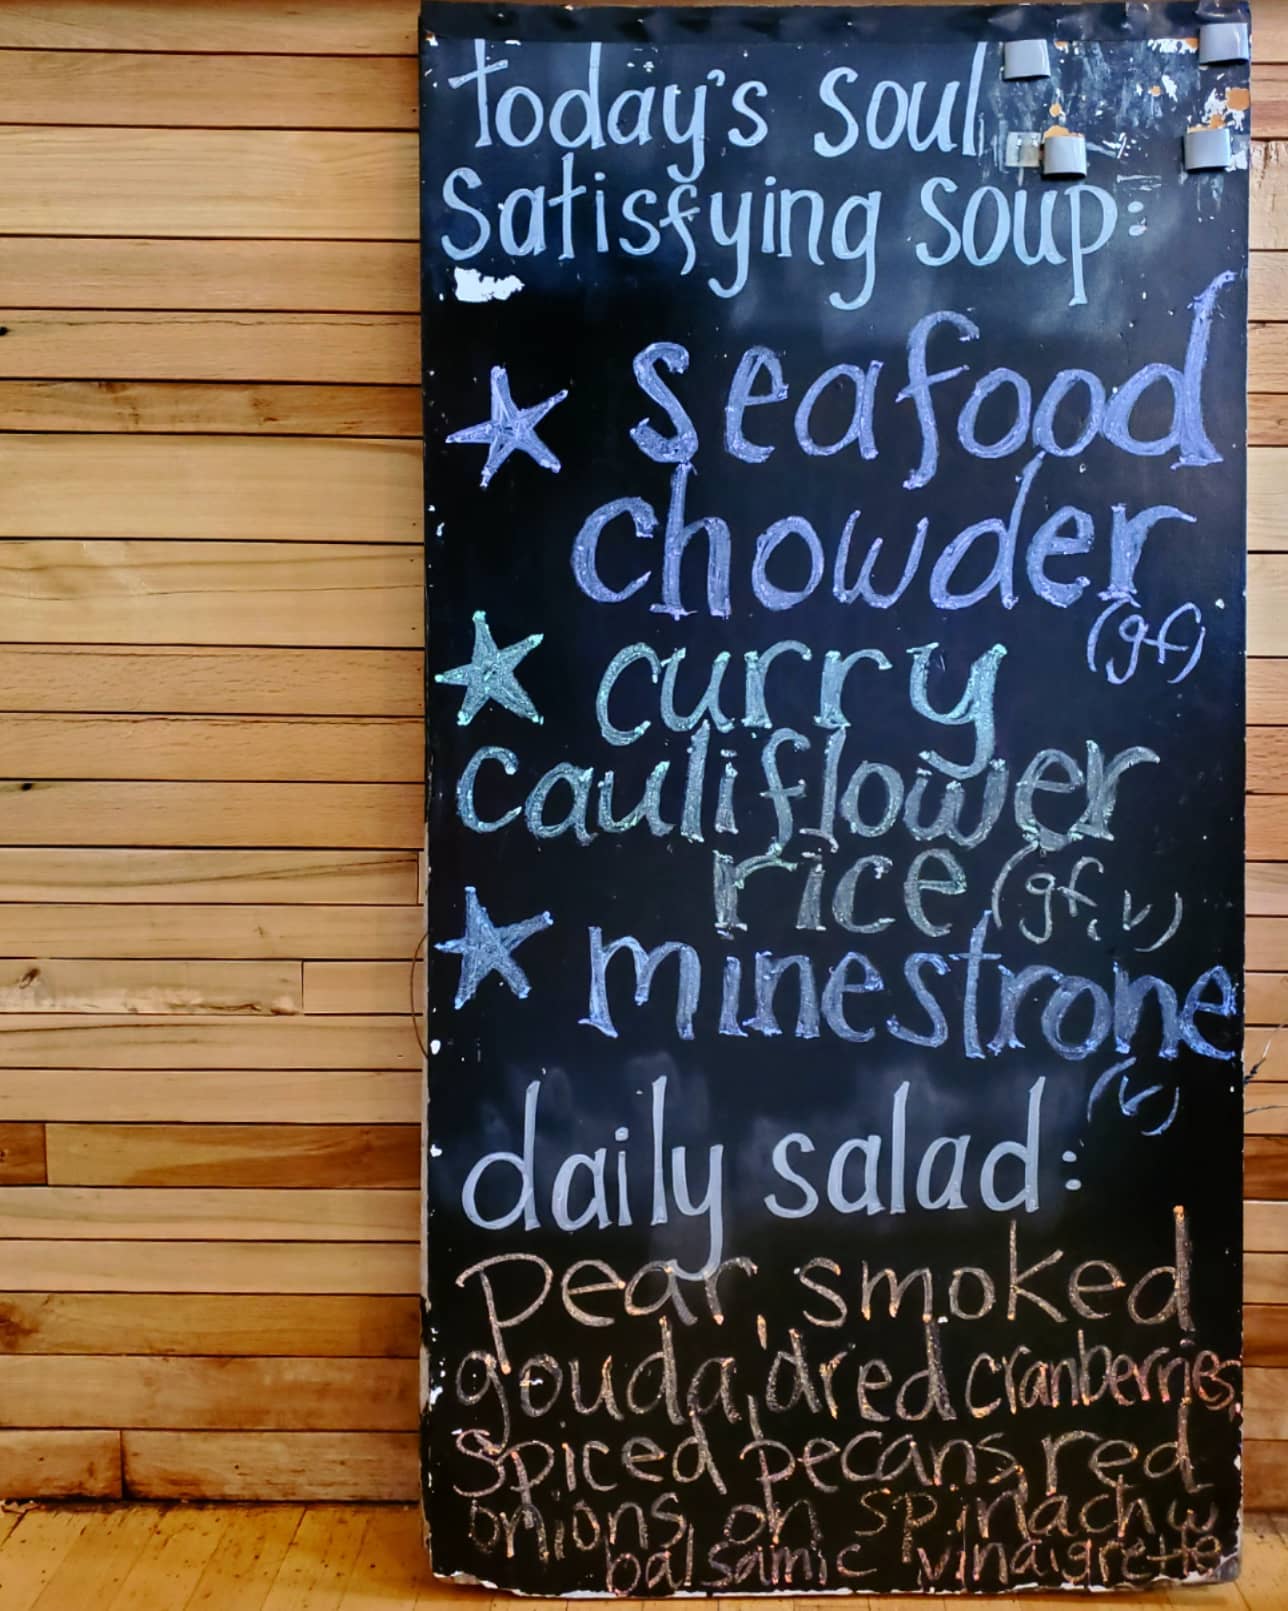 today's soul
satisfying soup:
seafood
chowder
(gf)
curry
cauliflower
rice (gf, v)
minestrone
(v)
daily salad:
pear, smoked
gouda, dred cranberries,
spiced pecans, red
onions, on spinach w
balsamic vinaigrette